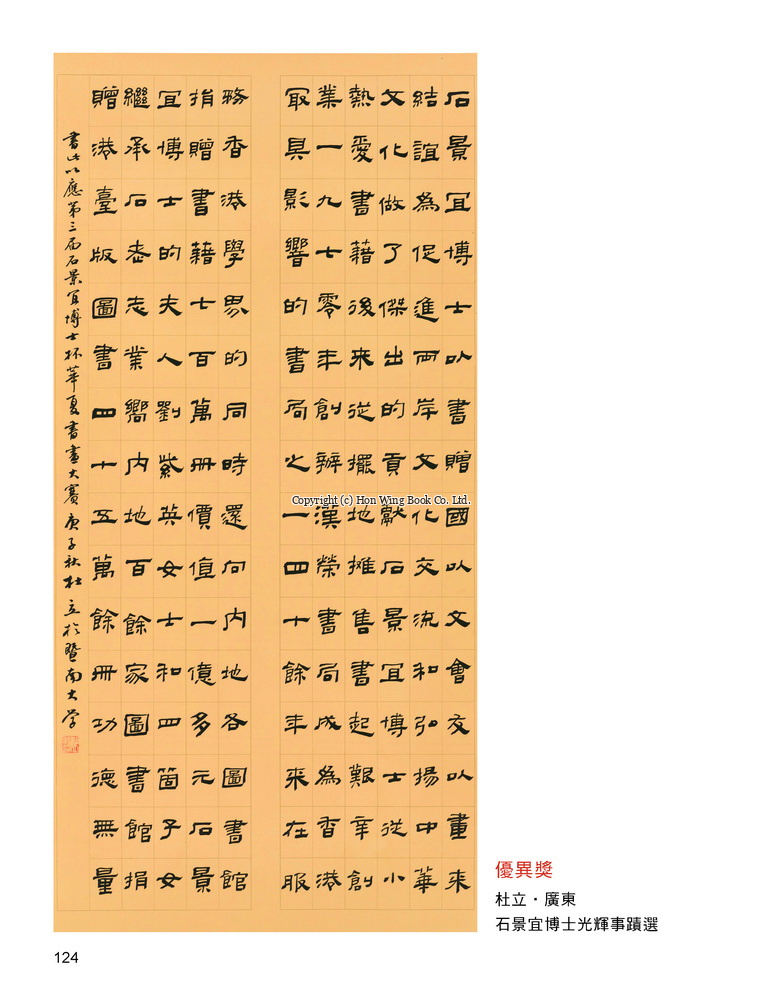 石景宜博士以書贈國以文會友以畫來
結誼為促進兩岸文化交流和弘揚中華
文化做了傑出的貢獻石景宜博士從小
熱愛書藉後來從擺地攤售書起艱辛創
業一九七零年創辦漢榮書局成為香港
最具影響的書局之一四十餘年來在服
務香港學界的同時還向内地各圖書館
捐贈書藉七百萬冊價值一億多元石景
宜博士的夫人劉紫英女士和四箇子女
繼承石老志業嚮内地百餘家圖書館捐
贈港臺版圖書四十五萬餘冊功德無量
書此以應第三屆石景宜博士杯華夏書畫大賽庚子秋杜立於暨南大学
Copyright (c) Hon Wing Book Co. Ltd.
優異獎
杜立・廣東
石景宜博士光輝事蹟選
124